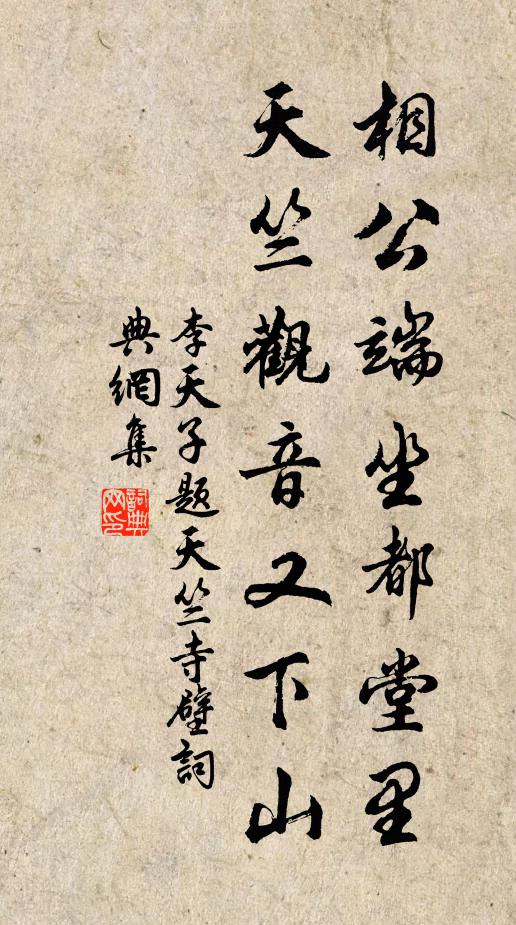 相公端坐都堂里
天竺觀音又下山
李天子題天竺寺壁詞
典網集
詞典网印